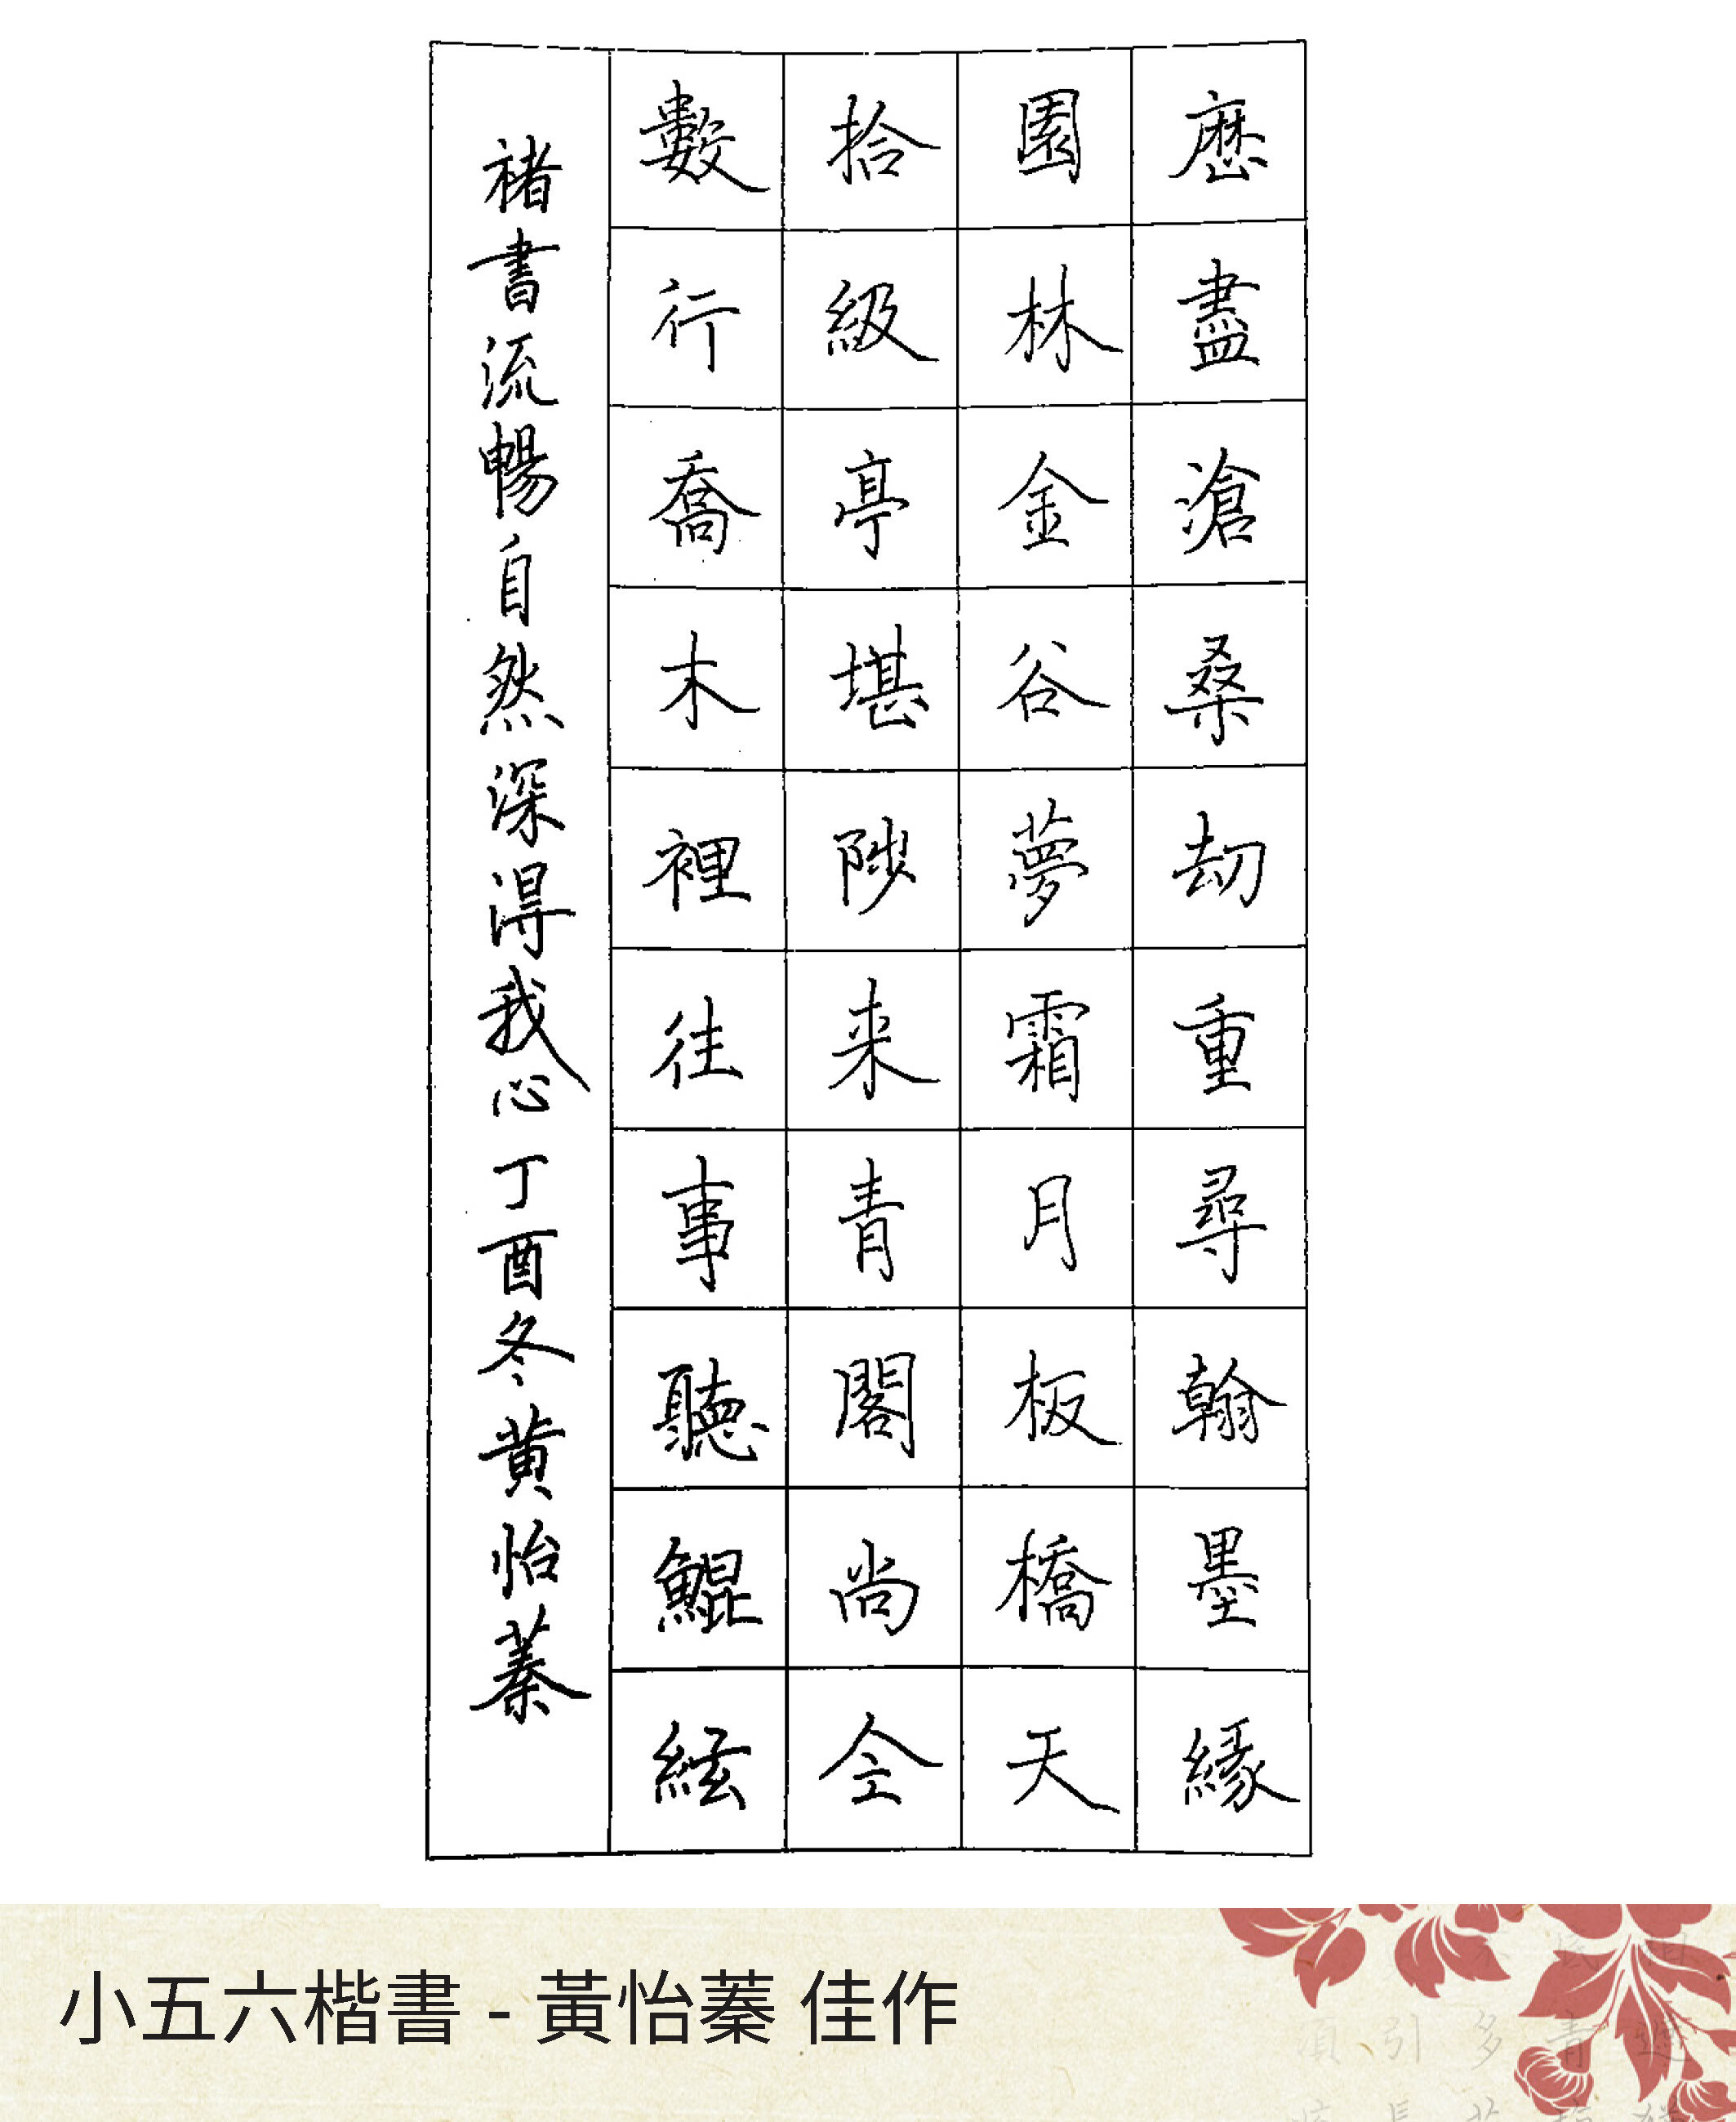 歷盡滄桑劫重尋翰墨緣
園林金谷夢霜月板橋天
拾級亭堪陟來青閣尚全
數行喬木裡往事聽鯤絃
褚書流暢自然深得我心丁酉冬黃怡蓁
小五六楷書 - 黃怡蓁 佳作